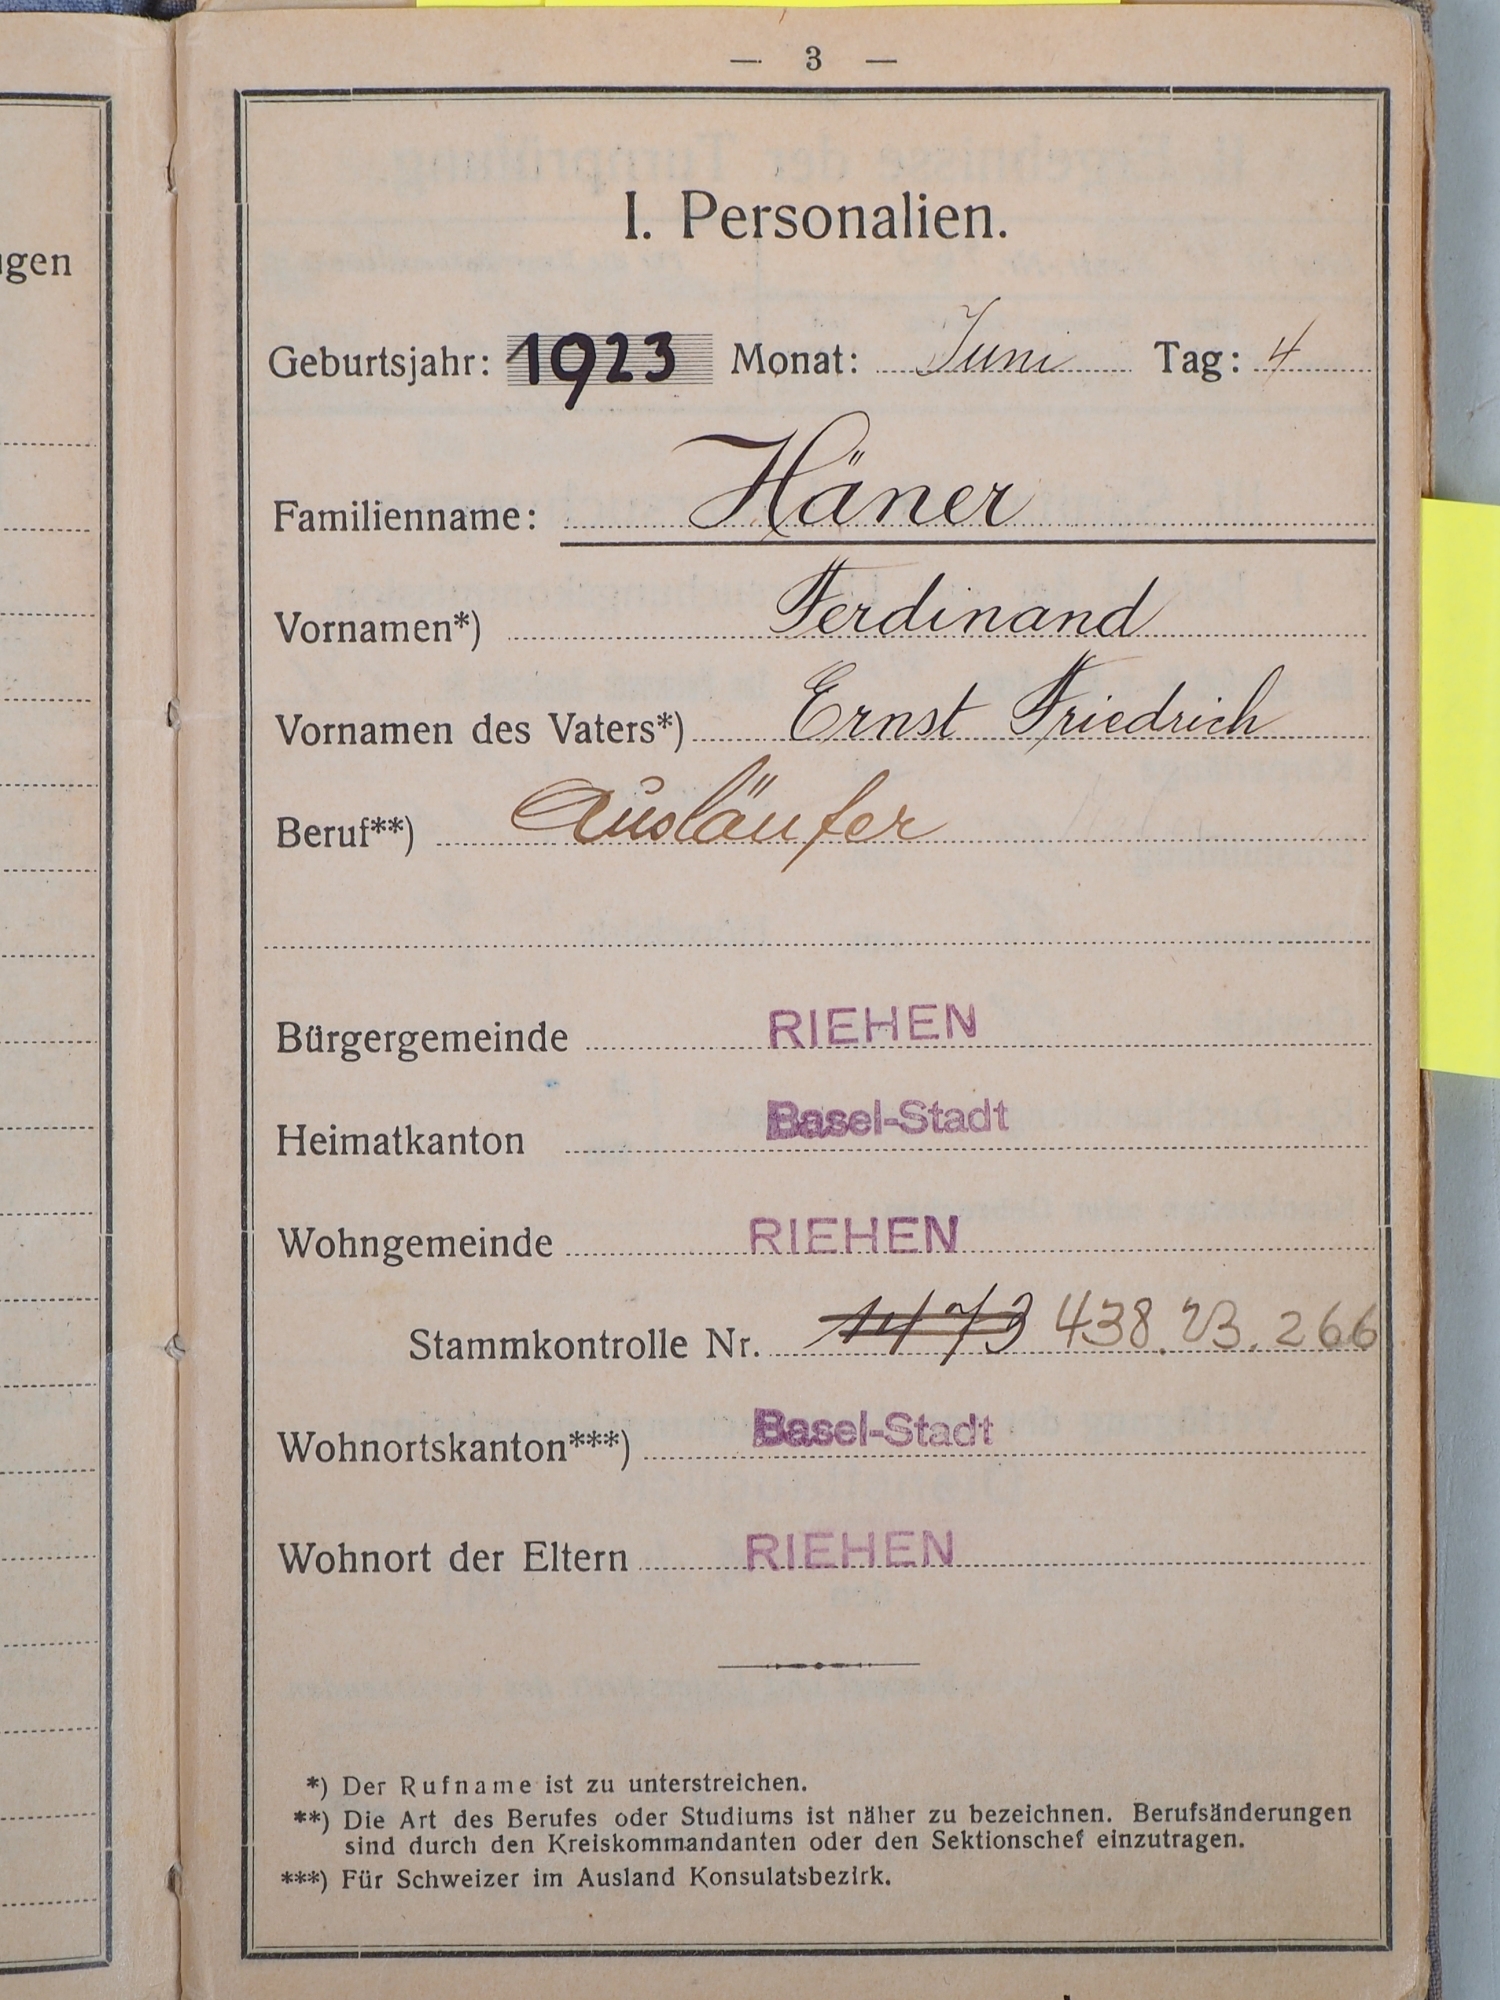 ngen
— 3 —
I. Personalien.
Geburtsjahr: 1923 Monat: Juni Tag: 4
Familienname: Häner
Vornamen*) Ferdinand
Vornamen des Vaters*) Ernst Friedrich
Beruf**) Ausläufer
Bürgergemeinde RIEHEN
Heimatkanton Basel-Stadt
Wohngemeinde RIEHEN
Stammkontrolle Nr. 1473 438.23.266
Wohnortskanton***) Basel-Stadt
Wohnort der Eltern RIEHEN
*) Der Rufname ist zu unterstreichen.
**) Die Art des Berufes oder Studiums ist näher zu bezeichnen. Berufsänderungen
sind durch den Kreiskommandanten oder den Sektionschef einzutragen.
***) Für Schweizer im Ausland Konsulatsbezirk.